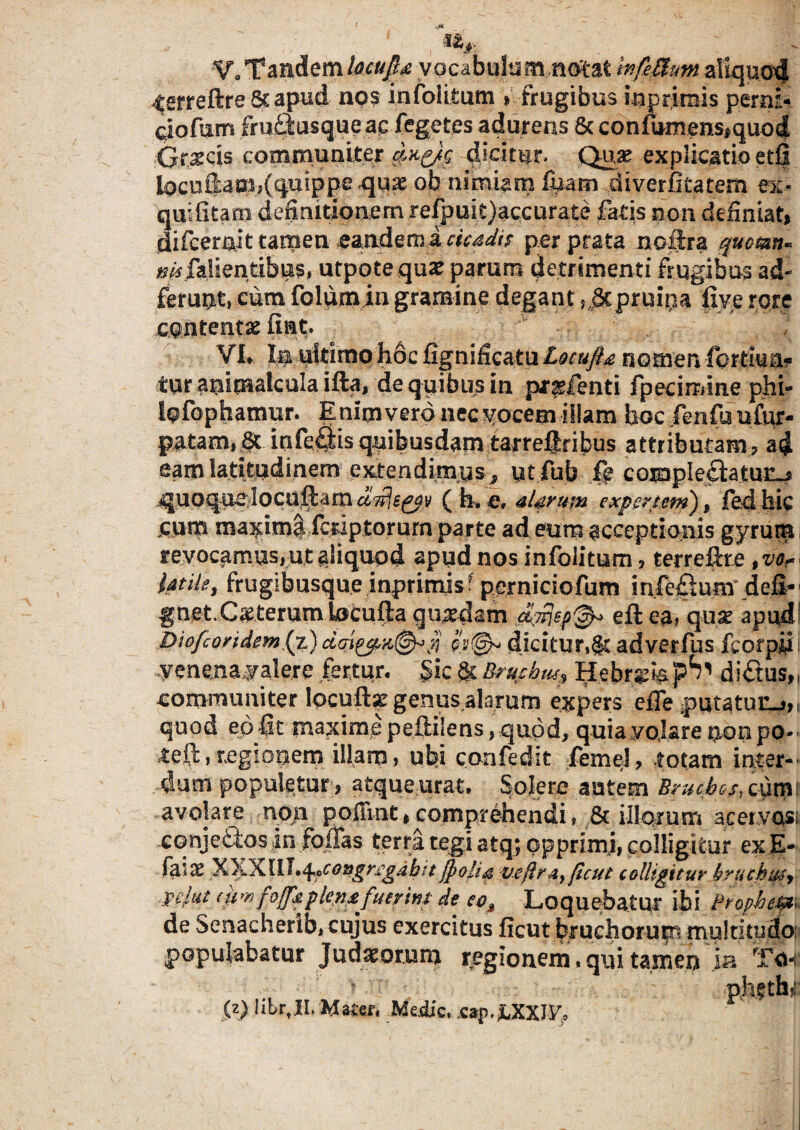 12.
V. Tandem locustæ vocabulum notat insectum aliquod
terrestre & apud nos insolitum, frugibus inprimis perni-
ciosum fructusque ac segetes adurens & consumens, quod
Græcis communiter ἀκρὶς dicitur. Quæ explicatio etsi
locustam, (quippe quæ ob nimiam suam diversitatem ex-
quisitam definitionem respuit) accurate satis non definiat,
discernit tamen eandem à cicadis per prata nostra quotan-
nis salientibus, utpote quæ parum detrimenti frugibus ad-
ferunt, cùm solùm in gramine degant, & pruina sive rore
contentæ sint.
VI. In ultimo hôc significatu Locustæ nomen sortiun-
tur animalcula ista, de quibus in præsenti specimine phi-
losophamur. Enimverò nec vocem illam hoc sensu usur-
patam, & insectis quibusdam tarrestribus attributam, ad
eam latitudinem extendimus, ut sub se complectatur
quoque locustam ἄπτερον (h. e. alarum expertem), sed hic
cum maximâ scriptorum parte ad eum acceptionis gyrum
revocamus, ut aliquod apud nos insolitum, terrestre, vo-
latile, frugibusque inprimis perniciosum insectum desi-
gnet. Cæterum locusta quædam ἄπτερ@ est ea, quæ apud
Dioscoridem (z) ἀσίρακ@ ἢ ὄν@ dicitur, & adversus scorpii
venena valere fertur. Sic & Bruchus, Hebræis ילק dictus,
communiter locustæ genus alarum expers esse putatur,
quod eò sit maxime pestilens, quòd, quia volare non po-
test, regionem illam, ubi consedit semel, totam inter-
dum populetur, atque urat. Solere autem Bruchos, cùm
avolare non possint, comprehendi, & illorum acervos
conjectos in fossas terrâ tegi atq; opprimi, colligitur ex E-
saiæ XXXIII. 4. congregabit spolia vestra, sicut colligitur bruchus,
velut cùm fossæ plenæ fuerint de eo. Loquebatur ibi Propheta
de Senacherib, cujus exercitus sicut bruchorum multitudo
populabatur Judæorum regionem, qui tamen in To-
pheth,
(z) libr. II. Mater. Medic. cap. LXXIV.